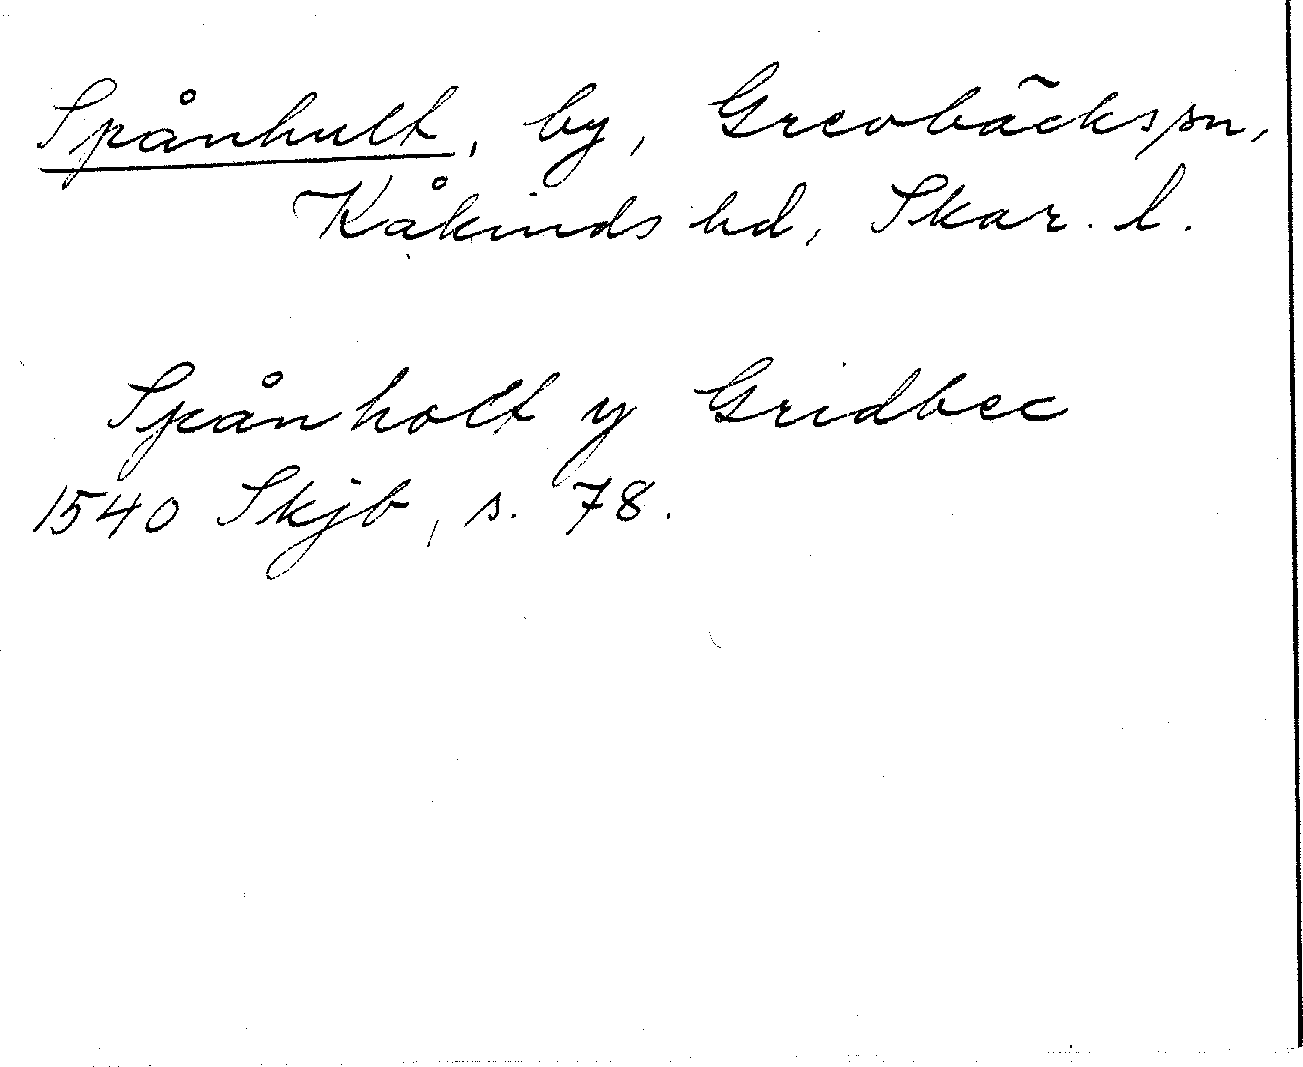 Spånhult, by, Grevbäcks sn,
Kåkinds hd, Skar. l.
Spånholt y Gridbec
1540 Skjb, s. 78.